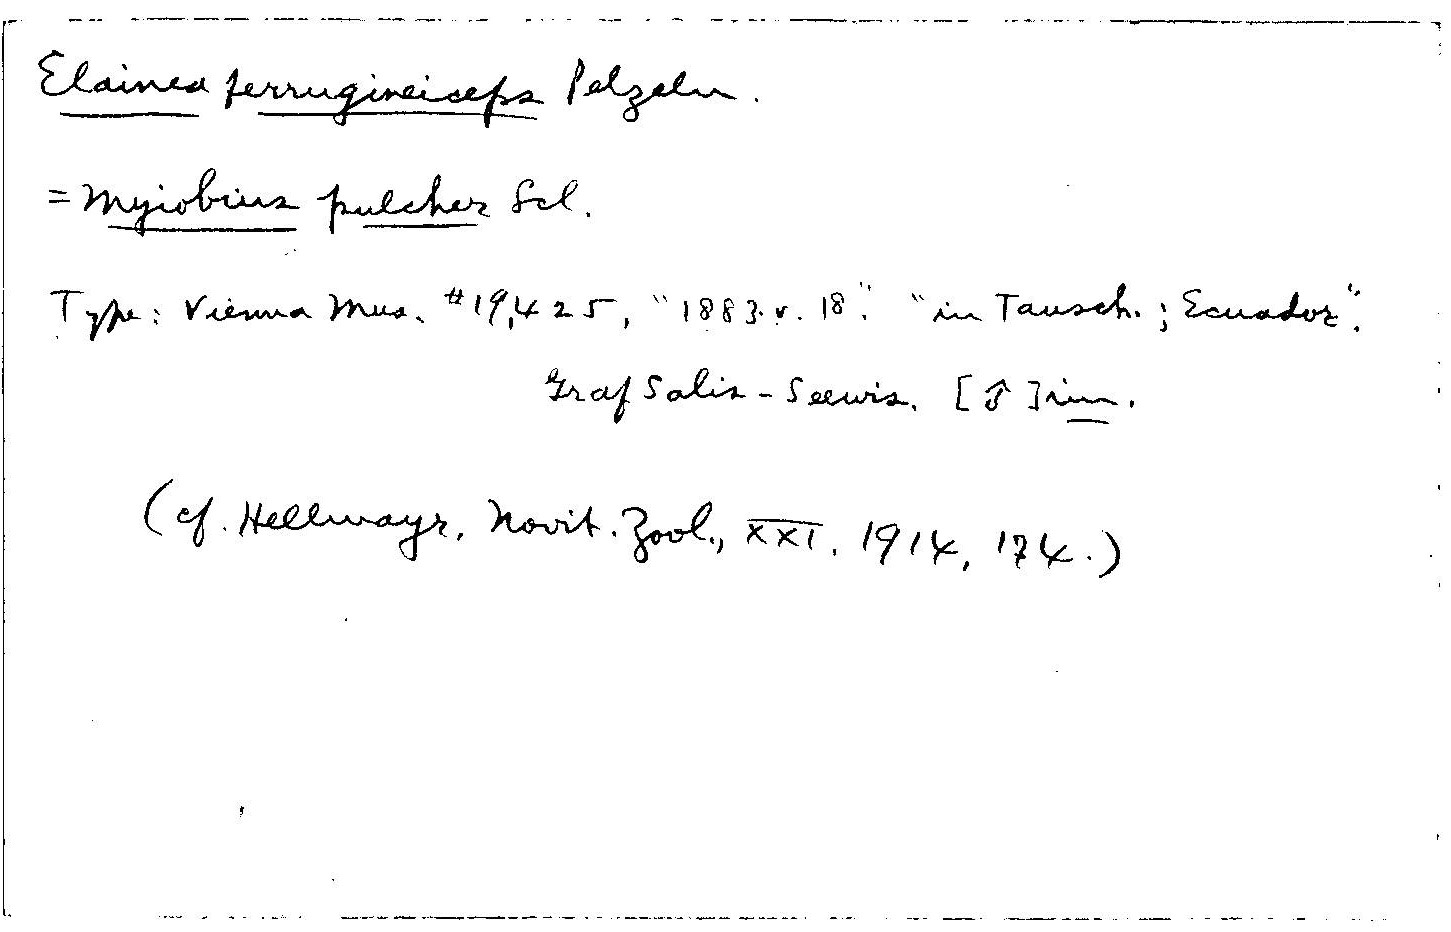 Elainea ferrugineiceps Pelzeln.
= Myiobius pulcher Scl.
Type: Vienna Mus. #19,425, "1883. v. 18". "in Tausch.; Ecuador".
Graf Salis-Seewis. [♂] im.
(cf. Hellmayr, Novit. Zool., XXI, 1914, 174.)